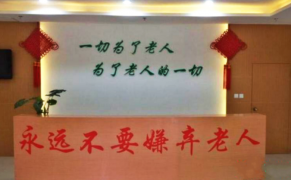 一切为了老人
为了老人的一切
永远不要嫌弃老人